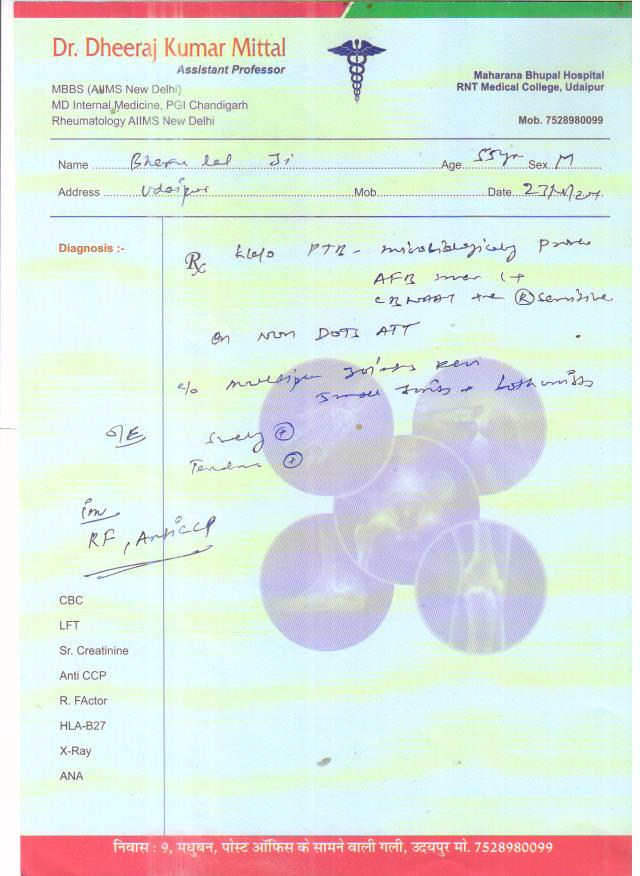 Dr. Dheeraj Kumar Mittal
Assistant Professor
MBBS (AIIMS New Delhi)
MD Internal Medicine, PGI Chandigarh
Rheumatology AIIMS New Delhi
Maharana Bhupal Hospital
RNT Medical College, Udaipur
Mob. 7528980099
Name Bheru lal Ji Age 55yr Sex M
Address Udaipur Mob. Date
Diagnosis :-
Rx k/c/o PTB - microbiologically
AFB smear 1+
CBNAAT +ve R sensitive
On Non DOTS ATT
c/o multiple Joints
small Joints + both
O/E
+
+
Inv
RF, Anti CCP
CBC
LFT
Sr. Creatinine
Anti CCP
R. FActor
HLA-B27
X-Ray
ANA
निवास : 9, मधुबन, पोस्ट ऑफिस के सामने वाली गली, उदयपुर मो. 7528980099